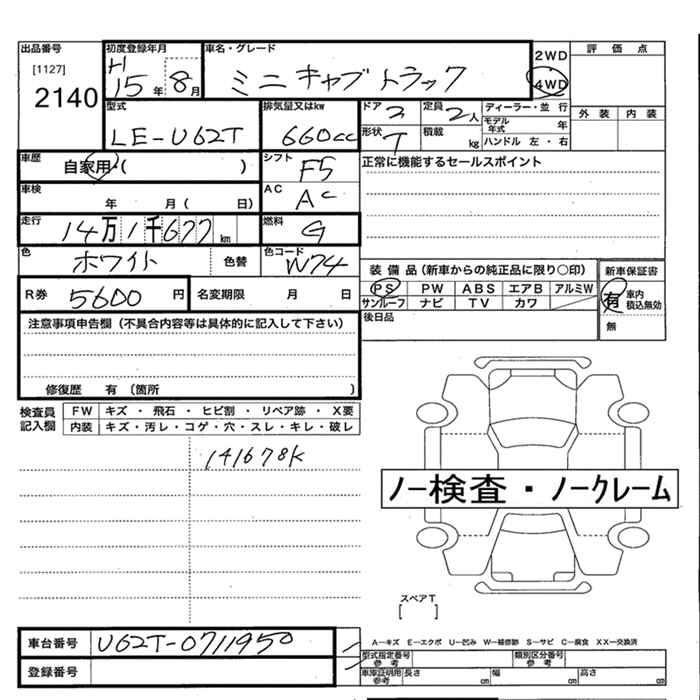 出品番号 初度登録年月 車名・グレード 2WD 評価点
[1127] H 15年 8月 ミニキャブトラック 4WD
2140 外装 内装
型式 排気量又はkw ドア 2 定員 2人 ディーラー・並行
LE-U62T 660cc 形状 T 積載 kg モデル年式 年
ハンドル 左・右
車歴 自家用・( ) シフト F5 正常に機能するセールスポイント
車検 年 月( 日) AC AC
走行 14万1千677km 燃料 G
色 ホワイト 色替 色コード W74
装備品(新車からの純正品に限り○印) 新車保証書
PS PW ABS エアB アルミW 有 車内積込無効
サンルーフ ナビ TV カワ 無
R券 5600円 名変期限 月 日 後日品
注意事項申告欄(不具合内容等は具体的に記入して下さい)
修復歴 有 〔箇所 〕
検査員記入欄 FW キズ・飛石・ヒビ割・リペア跡・X要
内装 キズ・汚レ・コゲ・穴・スレ・キレ・破レ
141678K
ノー検査・ノークレーム
スペアT
[ ]
車台番号 U62T-0711950
登録番号
A―キズ E―エクボ U―凹み W―補修跡 S―サビ C―腐食 XX―交換済
型式指定番号 参考 類別区分番号 参考
車庫証明用 参考 長さ cm 幅 cm 高さ cm